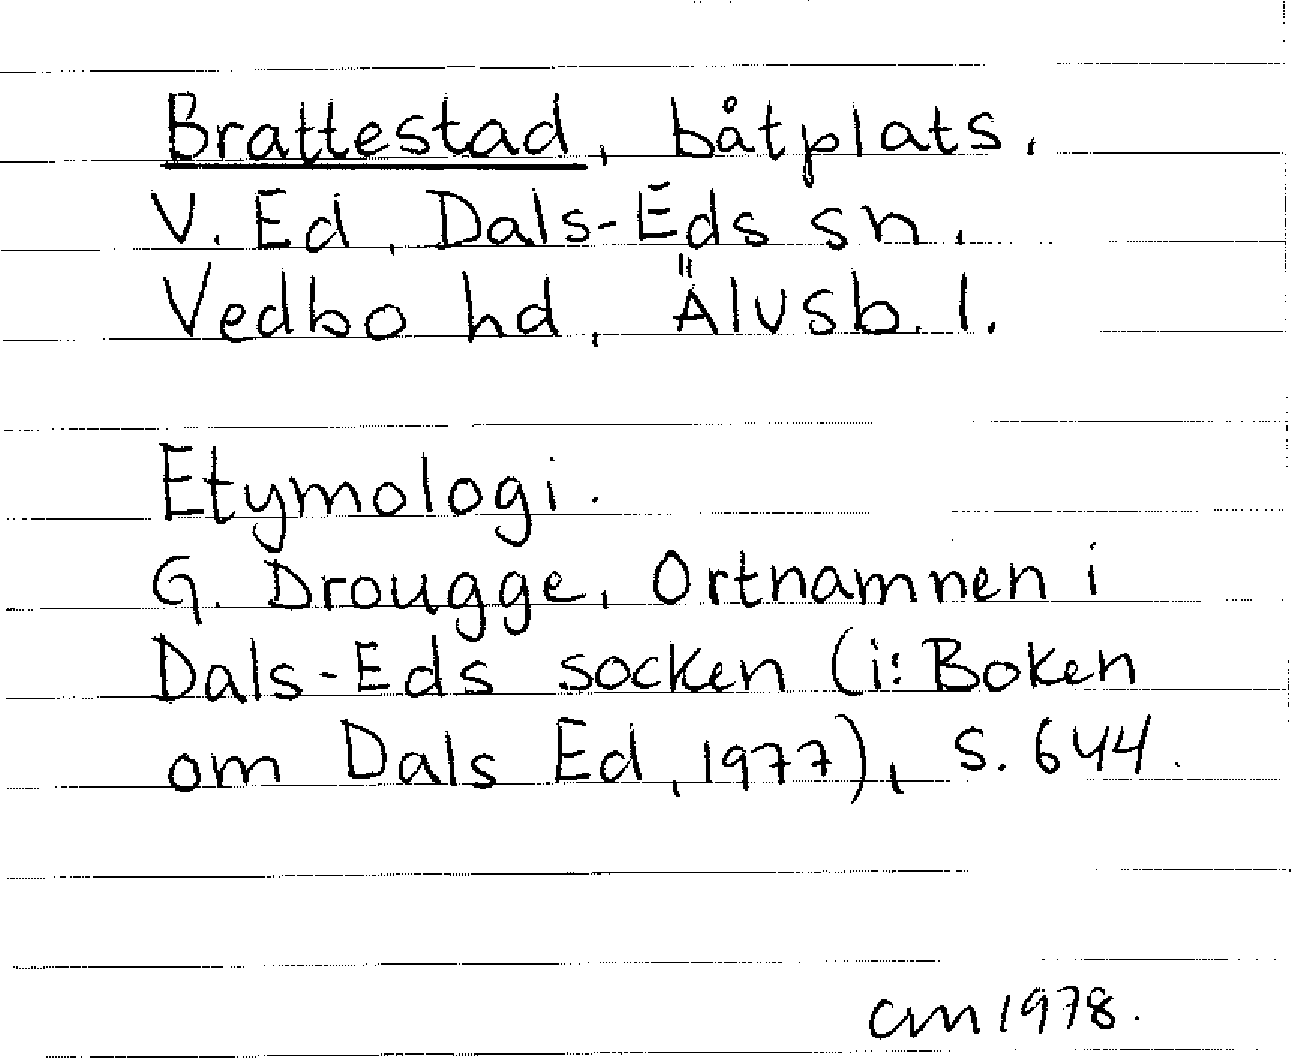 Brattestad, båtplats.
V. Ed, Dals-Eds sn.
Vedbo hd, Älvsb. l.
Etymologi.
G. Drougge, Ortnamnen i
Dals-Eds socken (i: Boken
om Dals Ed, 1977), s. 644.
cm 1978.